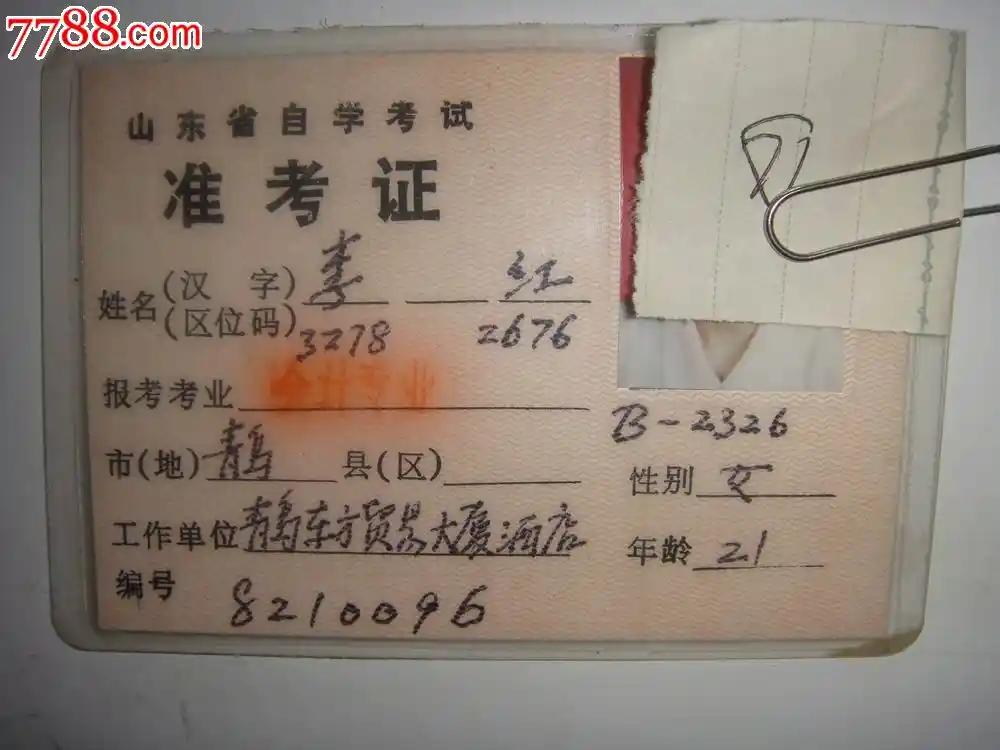 7788.com
山东省自学考试
准考证
姓名(汉 字) 李 红
(区位码) 3278 2676
报考考业 会计专业
市(地) 青岛 县(区)
工作单位 青岛东方贸易大厦酒店
编号 8210096
B-2326
性别 女
年龄 21